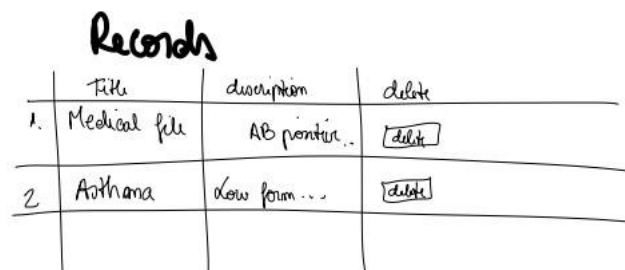 Records
Title description delete
1. Medical file AB positiv.. delete
2 Asthma Low form... delete